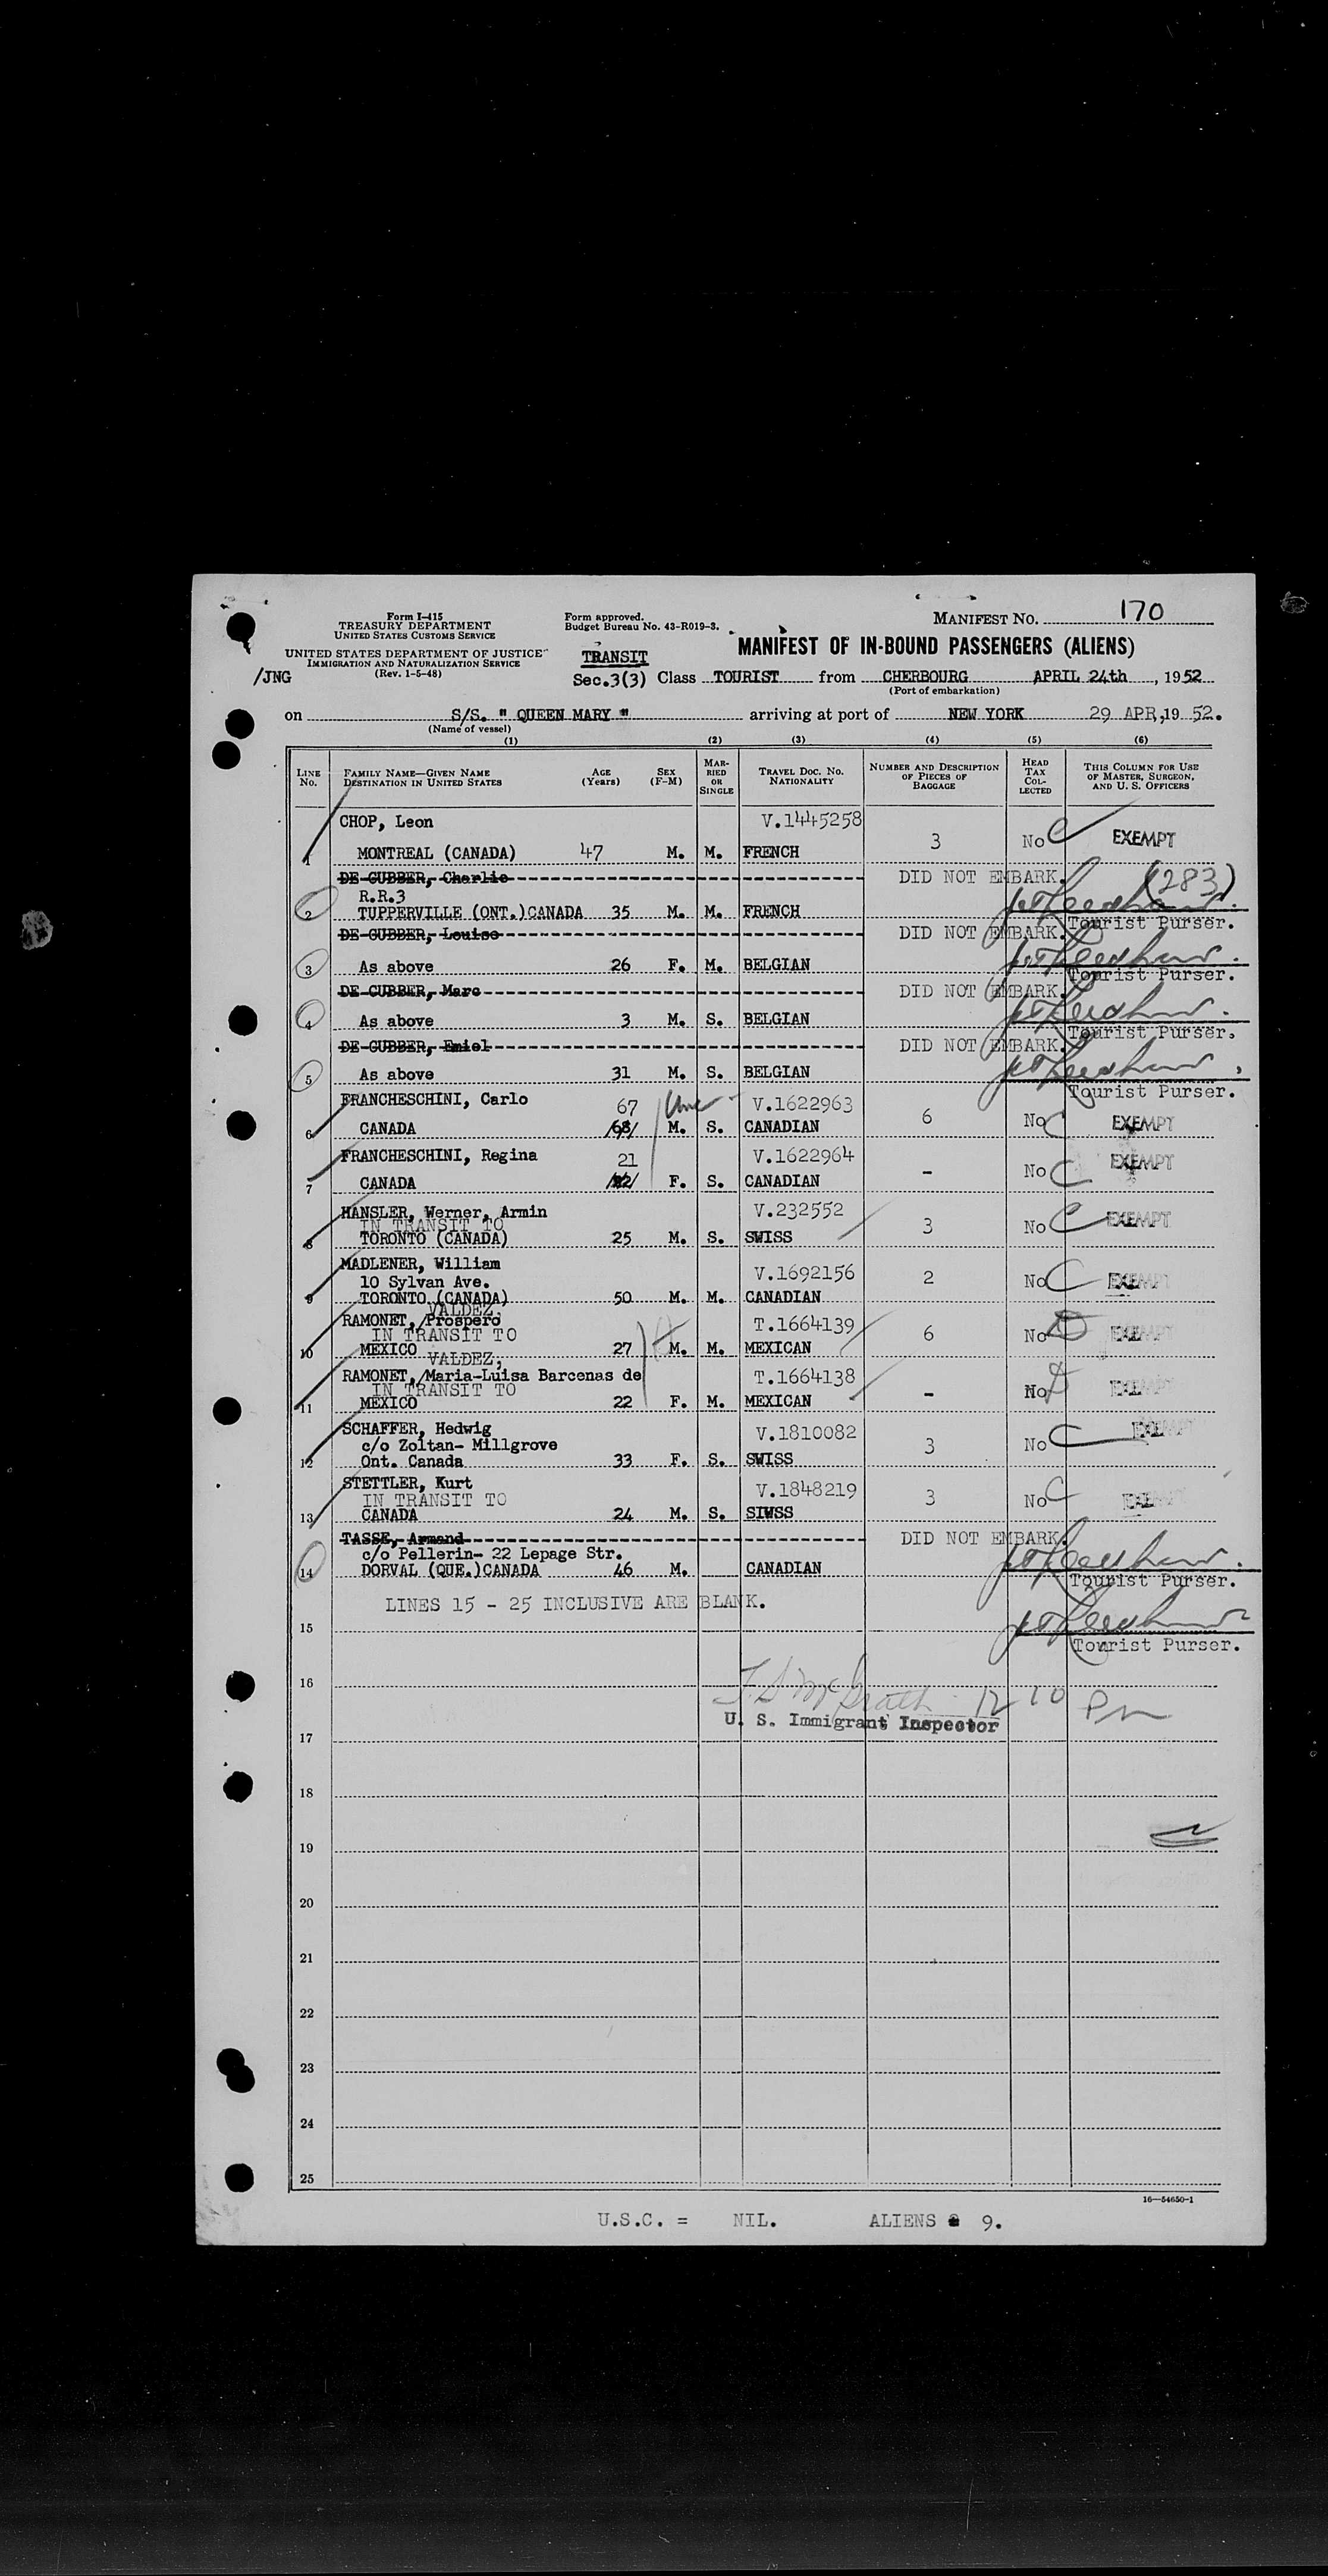 Form I-415
TREASURY DEPARTMENT
UNITED STATES CUSTOMS SERVICE
UNITED STATES DEPARTMENT OF JUSTICE
IMMIGRATION AND NATURALIZATION SERVICE
(Rev. 1-5-48)
/JNG
Form approved.
Budget Bureau No. 43-R019-3.
MANIFEST No. 170
MANIFEST OF IN-BOUND PASSENGERS (ALIENS)
TRANSIT
Sec.3(3) Class TOURIST from CHERBOURG APRIL 24th , 1952
(Port of embarkation)
on S/S. " QUEEN MARY " arriving at port of NEW YORK 29 APR, 19 52.
(Name of vessel)
(1) (2) (3) (4) (5) (6)
LINE No. FAMILY NAME—GIVEN NAME DESTINATION IN UNITED STATES AGE (Years) SEX (F-M) MARRIED OR SINGLE TRAVEL DOC. NO. NATIONALITY NUMBER AND DESCRIPTION OF PIECES OF BAGGAGE HEAD TAX COLLECTED THIS COLUMN FOR USE OF MASTER, SURGEON, AND U. S. OFFICERS
CHOP, Leon V.1445258
1 MONTREAL (CANADA) 47 M. M. FRENCH 3 No C EXEMPT
DE GUBBER, Charlie DID NOT EMBARK. (283)
R.R.3
2 TUPPERVILLE (ONT.) CANADA 35 M. M. FRENCH
Tourist Purser.
DE GUBBER, Louise DID NOT EMBARK.
3 As above 26 F. M. BELGIAN
Tourist Purser.
DE GUBBER, Marc DID NOT EMBARK.
4 As above 3 M. S. BELGIAN
Tourist Purser.
DE GUBBER, Emiel DID NOT EMBARK.
5 As above 31 M. S. BELGIAN
Tourist Purser.
FRANCHESCHINI, Carlo 67 V.1622963
6 CANADA 68 M. S. CANADIAN 6 No C EXEMPT
FRANCHESCHINI, Regina 21 V.1622964
7 CANADA 22 F. S. CANADIAN - No C EXEMPT
HANSLER, Werner, Armin V.232552
IN TRANSIT TO
8 TORONTO (CANADA) 25 M. S. SWISS 3 No C EXEMPT
MADLENER, William V.1692156
10 Sylvan Ave.
9 TORONTO (CANADA) 50 M. M. CANADIAN 2 No C EXEMPT
VALDEZ,
RAMONET, /Prospero T.1664139
IN TRANSIT TO
10 MEXICO 27 M. M. MEXICAN 6 No EXEMPT
VALDEZ,
RAMONET, /Maria-Luisa Barcenas de T.1664138
IN TRANSIT TO
11 MEXICO 22 F. M. MEXICAN - No EXEMPT
SCHAFFER, Hedwig V.1810082
c/o Zoltan- Millgrove
12 Ont. Canada 33 F. S. SWISS 3 No C EXEMPT
STETTLER, Kurt V.1848219
IN TRANSIT TO
13 CANADA 24 M. S. SIWSS 3 No C EXEMPT
TASSE, Armand DID NOT EMBARK.
c/o Pellerin- 22 Lepage Str.
14 DORVAL (QUE.) CANADA 46 M. CANADIAN
Tourist Purser.
LINES 15 - 25 INCLUSIVE ARE BLANK.
15
Tourist Purser.
16 McGrath 12 10 Pm
U. S. Immigrant Inspector
17
18
19
20
21
22
23
24
25
16—54650-1
U.S.C. = NIL. ALIENS 9.